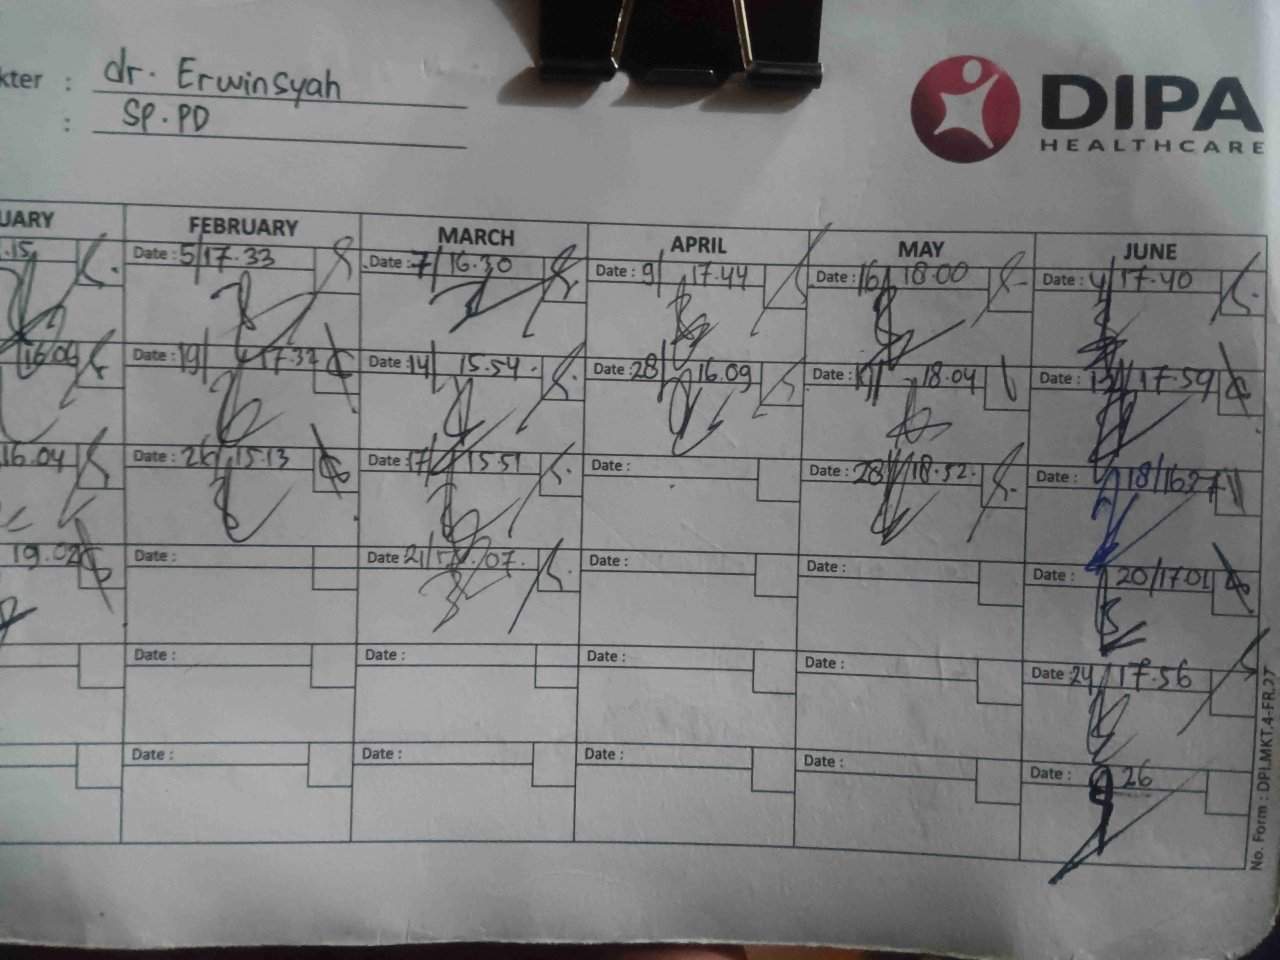 kter : dr. Erwinsyah
: SP.PD
DIPA
HEALTHCARE
UARY FEBRUARY MARCH APRIL MAY JUNE
.15 Date : 5/17.33 Date : 7/16.30 Date : 9/17.44 Date : 16/18.00 Date : 4/17.40
16.09 Date : 19/17.37 Date : 14/15.54 Date : 28/16.09 Date : 18.04 Date : 17.59
16.04 Date : 26/15.13 Date : 17/15.51 Date : Date : 28/18.52 Date : 18/
19.02 Date : Date : 21/ 07 Date : Date : Date : 20/17.01
Date : Date : Date : Date : Date : 24/17.56
Date : Date : Date : Date : Date : 26
No. Form : DPI.MKT.4-FR.27